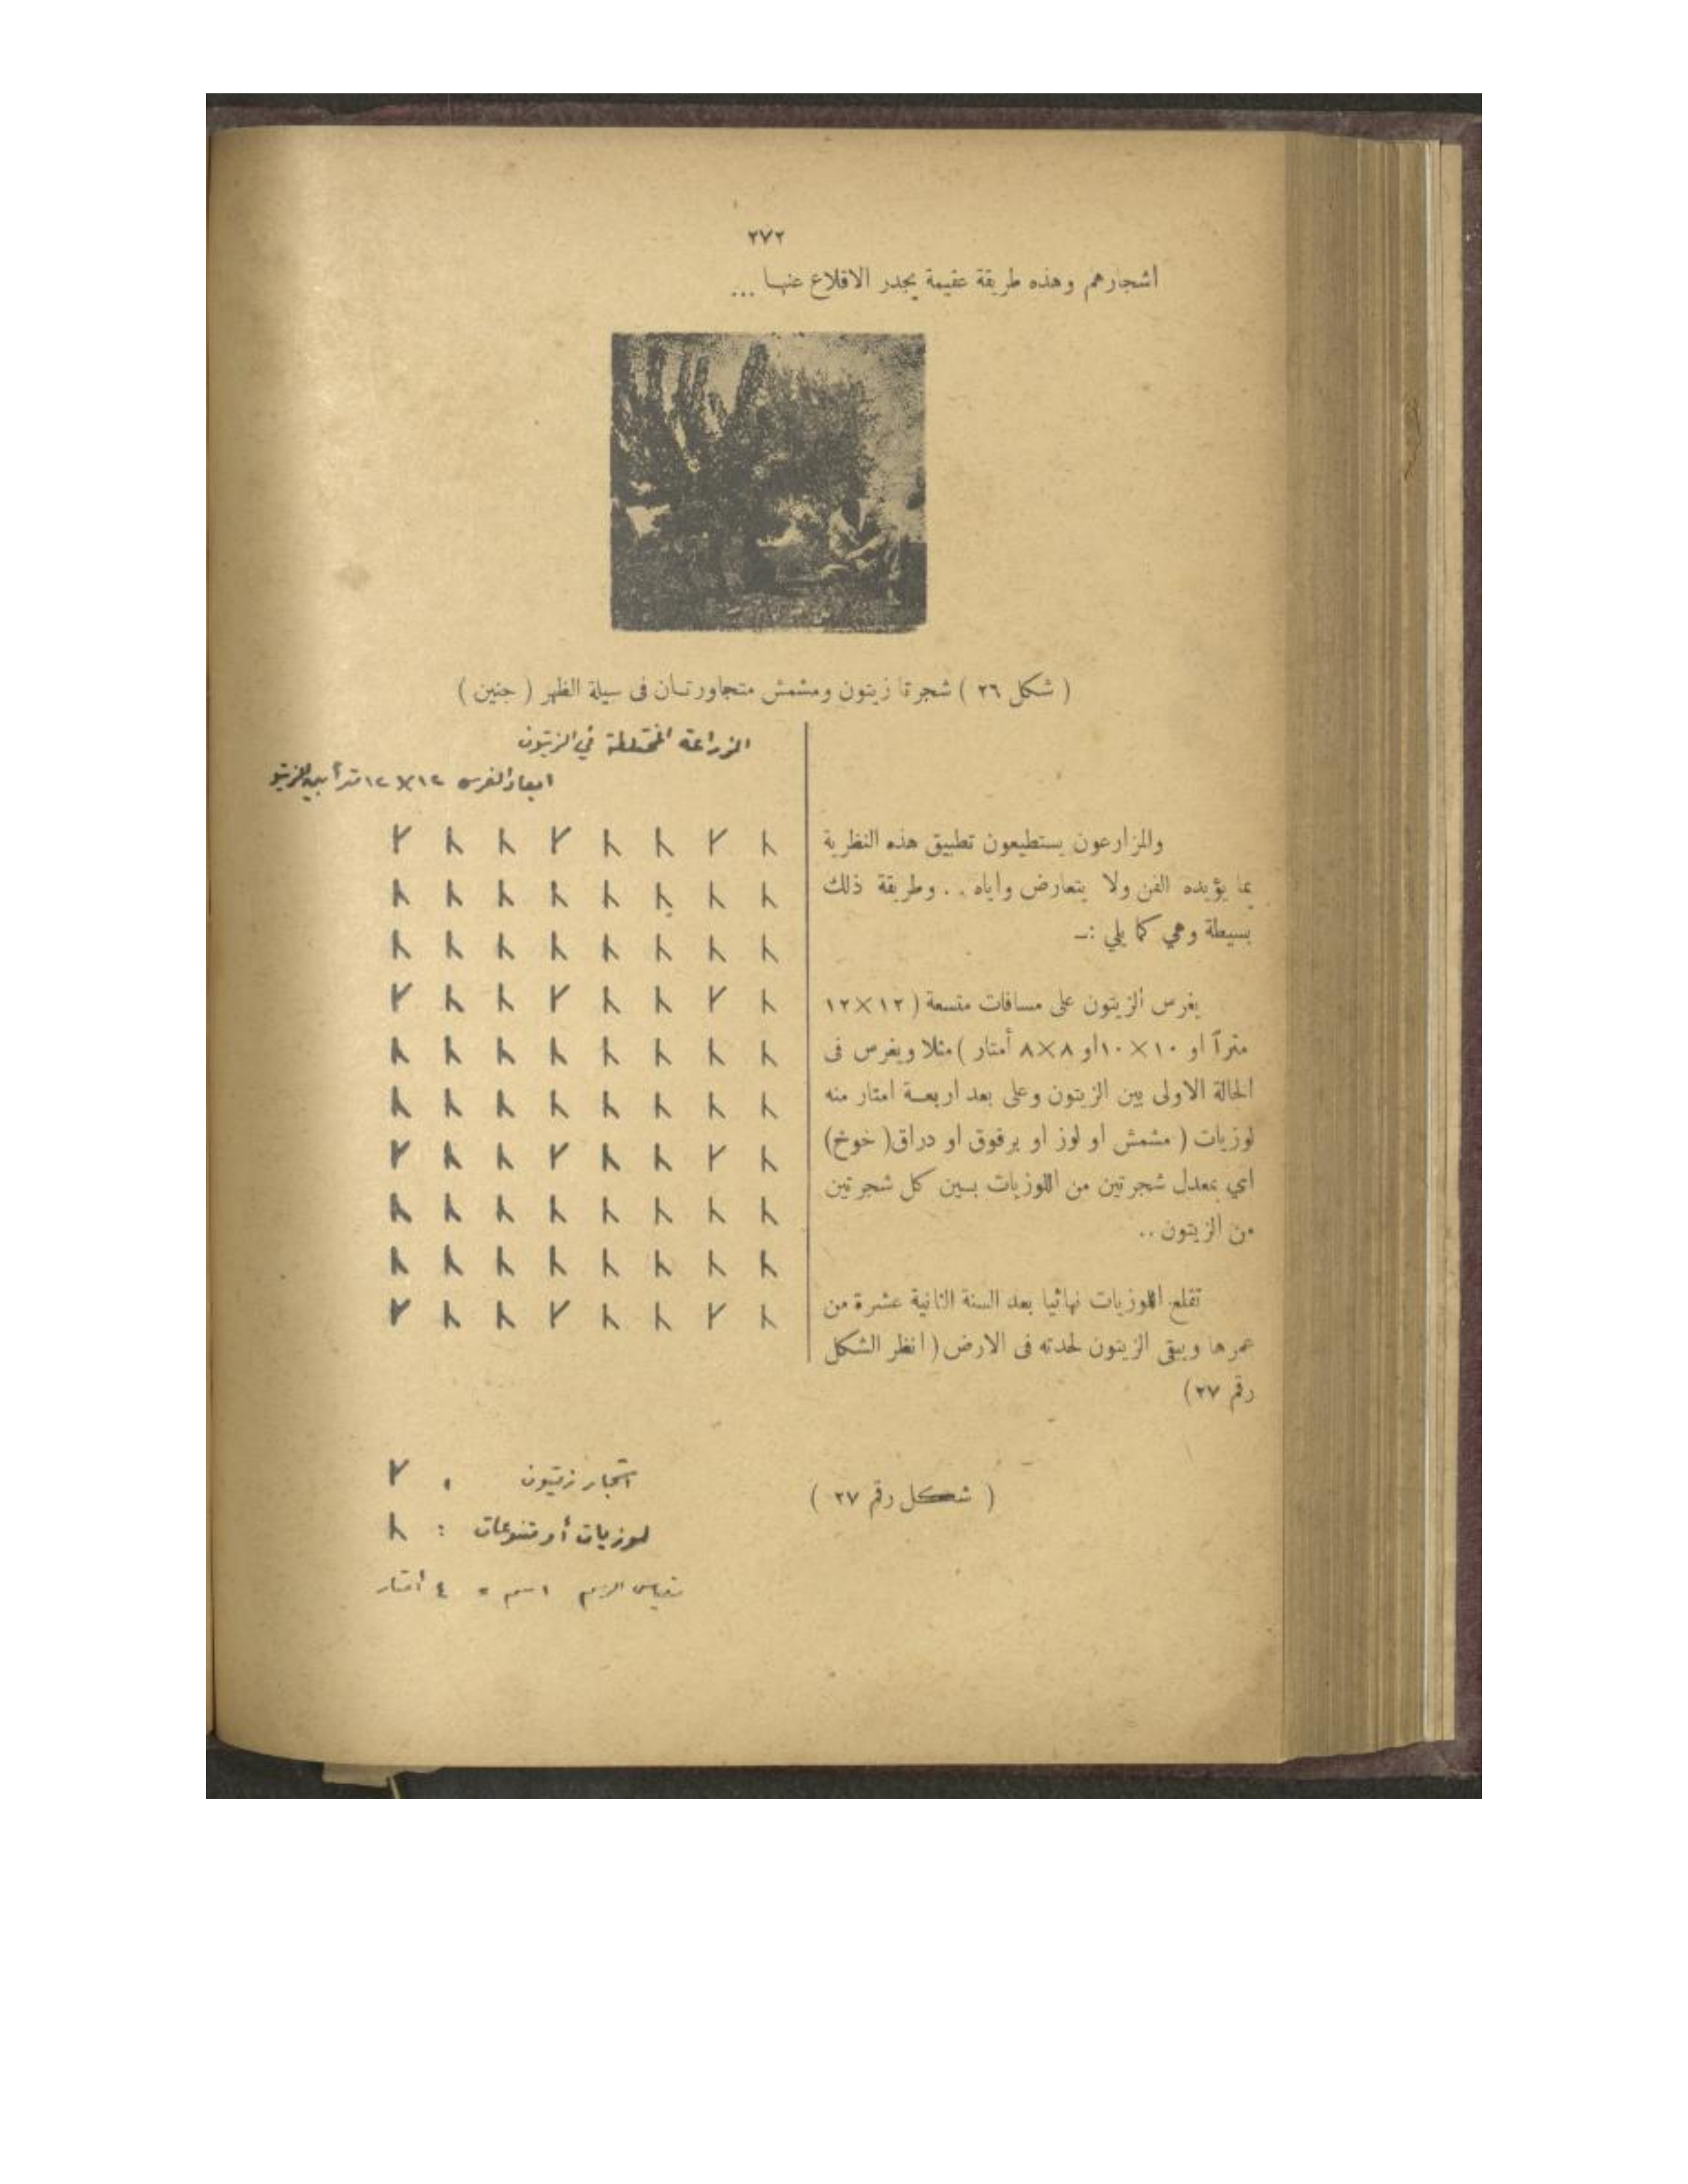 ٢٧٢
اشجارهم وهذه طريقة عقيمة يجدر الاقلاع عنها ...
( شكل ٢٦ ) شجرتا زيتون ومشمش متجاورتان فى سيلة الظهر ( جنين )
والمزارعون يستطيعون تطبيق هذه النظرية
بما يؤيده الفن ولا يتعارض واياه . . وطريقة ذلك
بسيطة وهي كما يلي :ـ
يغرس الزيتون على مسافات متسعة ( ١٢×١٢
متراً او ١٠×١٠او ٨×٨ أمتار ) مثلا ويغرس فى
الحالة الاولى بين الزيتون وعلى بعد اربعة امتار منه
لوزيات ( مشمش او لوز او برقوق او دراق( خوخ)
اي بمعدل شجرتين من اللوزيات بين كل شجرتين
من الزيتون ..
تقلع اللوزيات نهائيا بعد السنة الثانية عشرة من
عمرها ويبقى الزيتون لحدته فى الارض ( انظر الشكل
رقم ٢٧)
الزراعة المختلطة في الزيتون
ابعاد الغرس ١٢×١٢ متراً بين
اشجار زيتون
لوزيات أو متنوعات :
مقياس الرسم ١سم = ٤ أمتار
( شكل رقم ٢٧ )